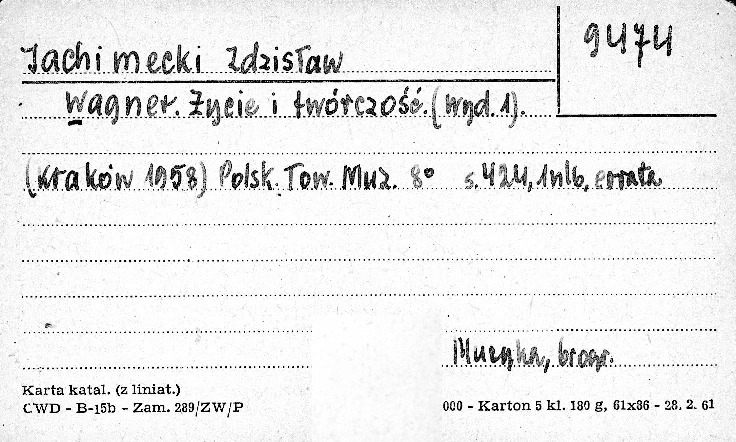 9474
Jachimecki Zdzisław
Wagner. Życie i twórczość. (Wyd. 1).
(Kraków 1958) Polsk. Tow. Muz. 8° s. 424, 1 nlb, errata
Muzyka, biogr.
Karta katal. (z liniat.)
CWD - B-15b - Zam. 289/ZW/P
000 - Karton 5 kl. 180 g, 61x86 - 28. 2. 61